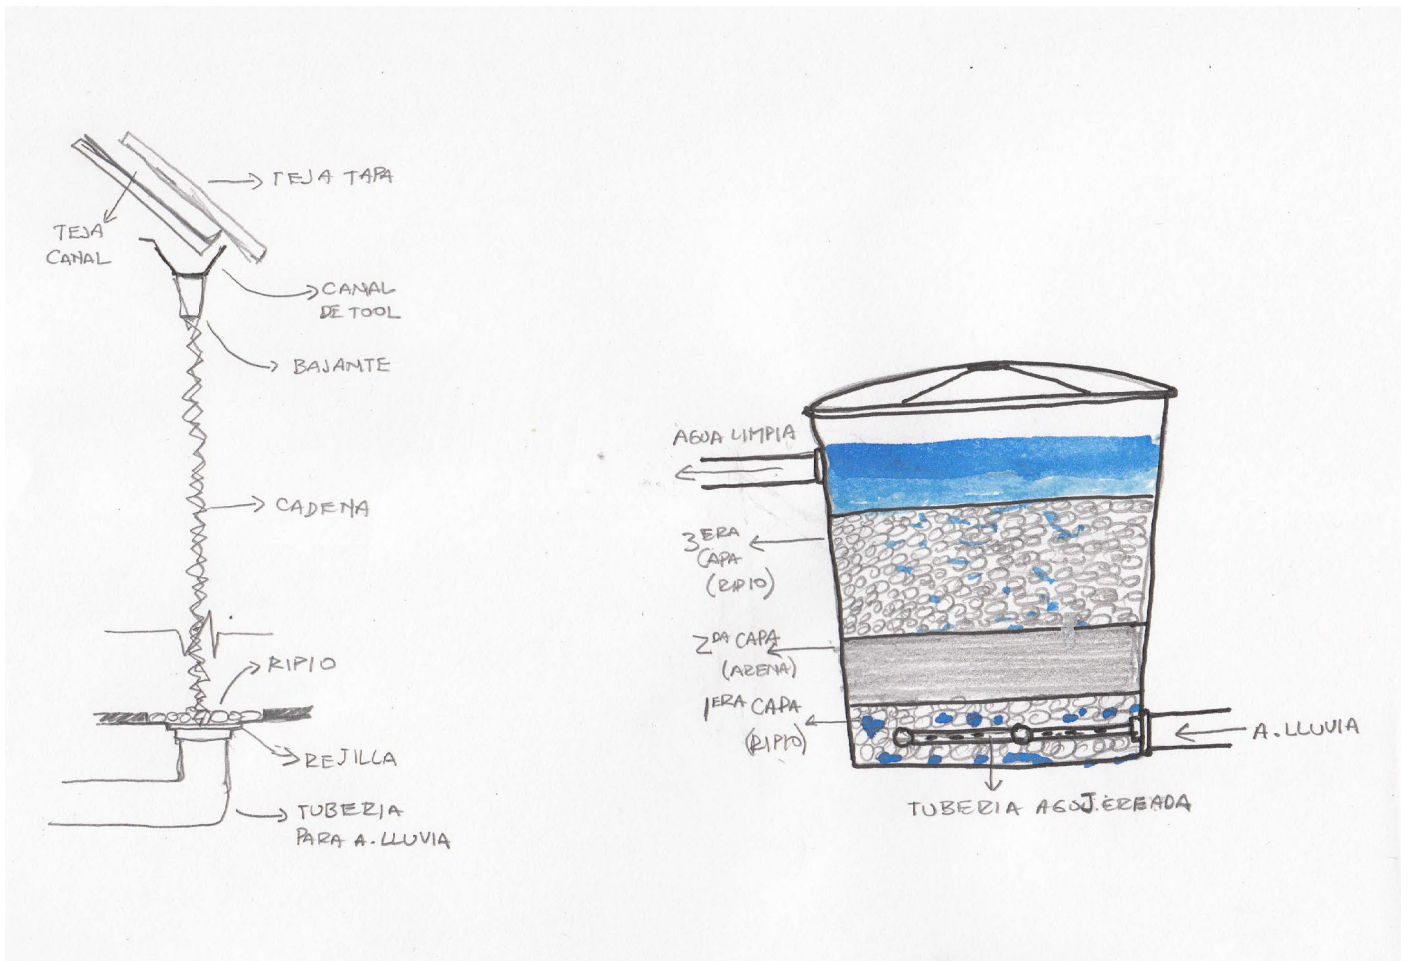 TEJA TAPA
TEJA
CANAL
CANAL
DE TOOL
BAJANTE
CADENA
RIPIO
REJILLA
TUBERIA
PARA A. LLUVIA
AGUA LIMPIA
3ERA
CAPA
(RIPIO)
2DA CAPA
(ARENA)
1ERA CAPA
(RIPIO)
A. LLUVIA
TUBERIA AGUJEREADA